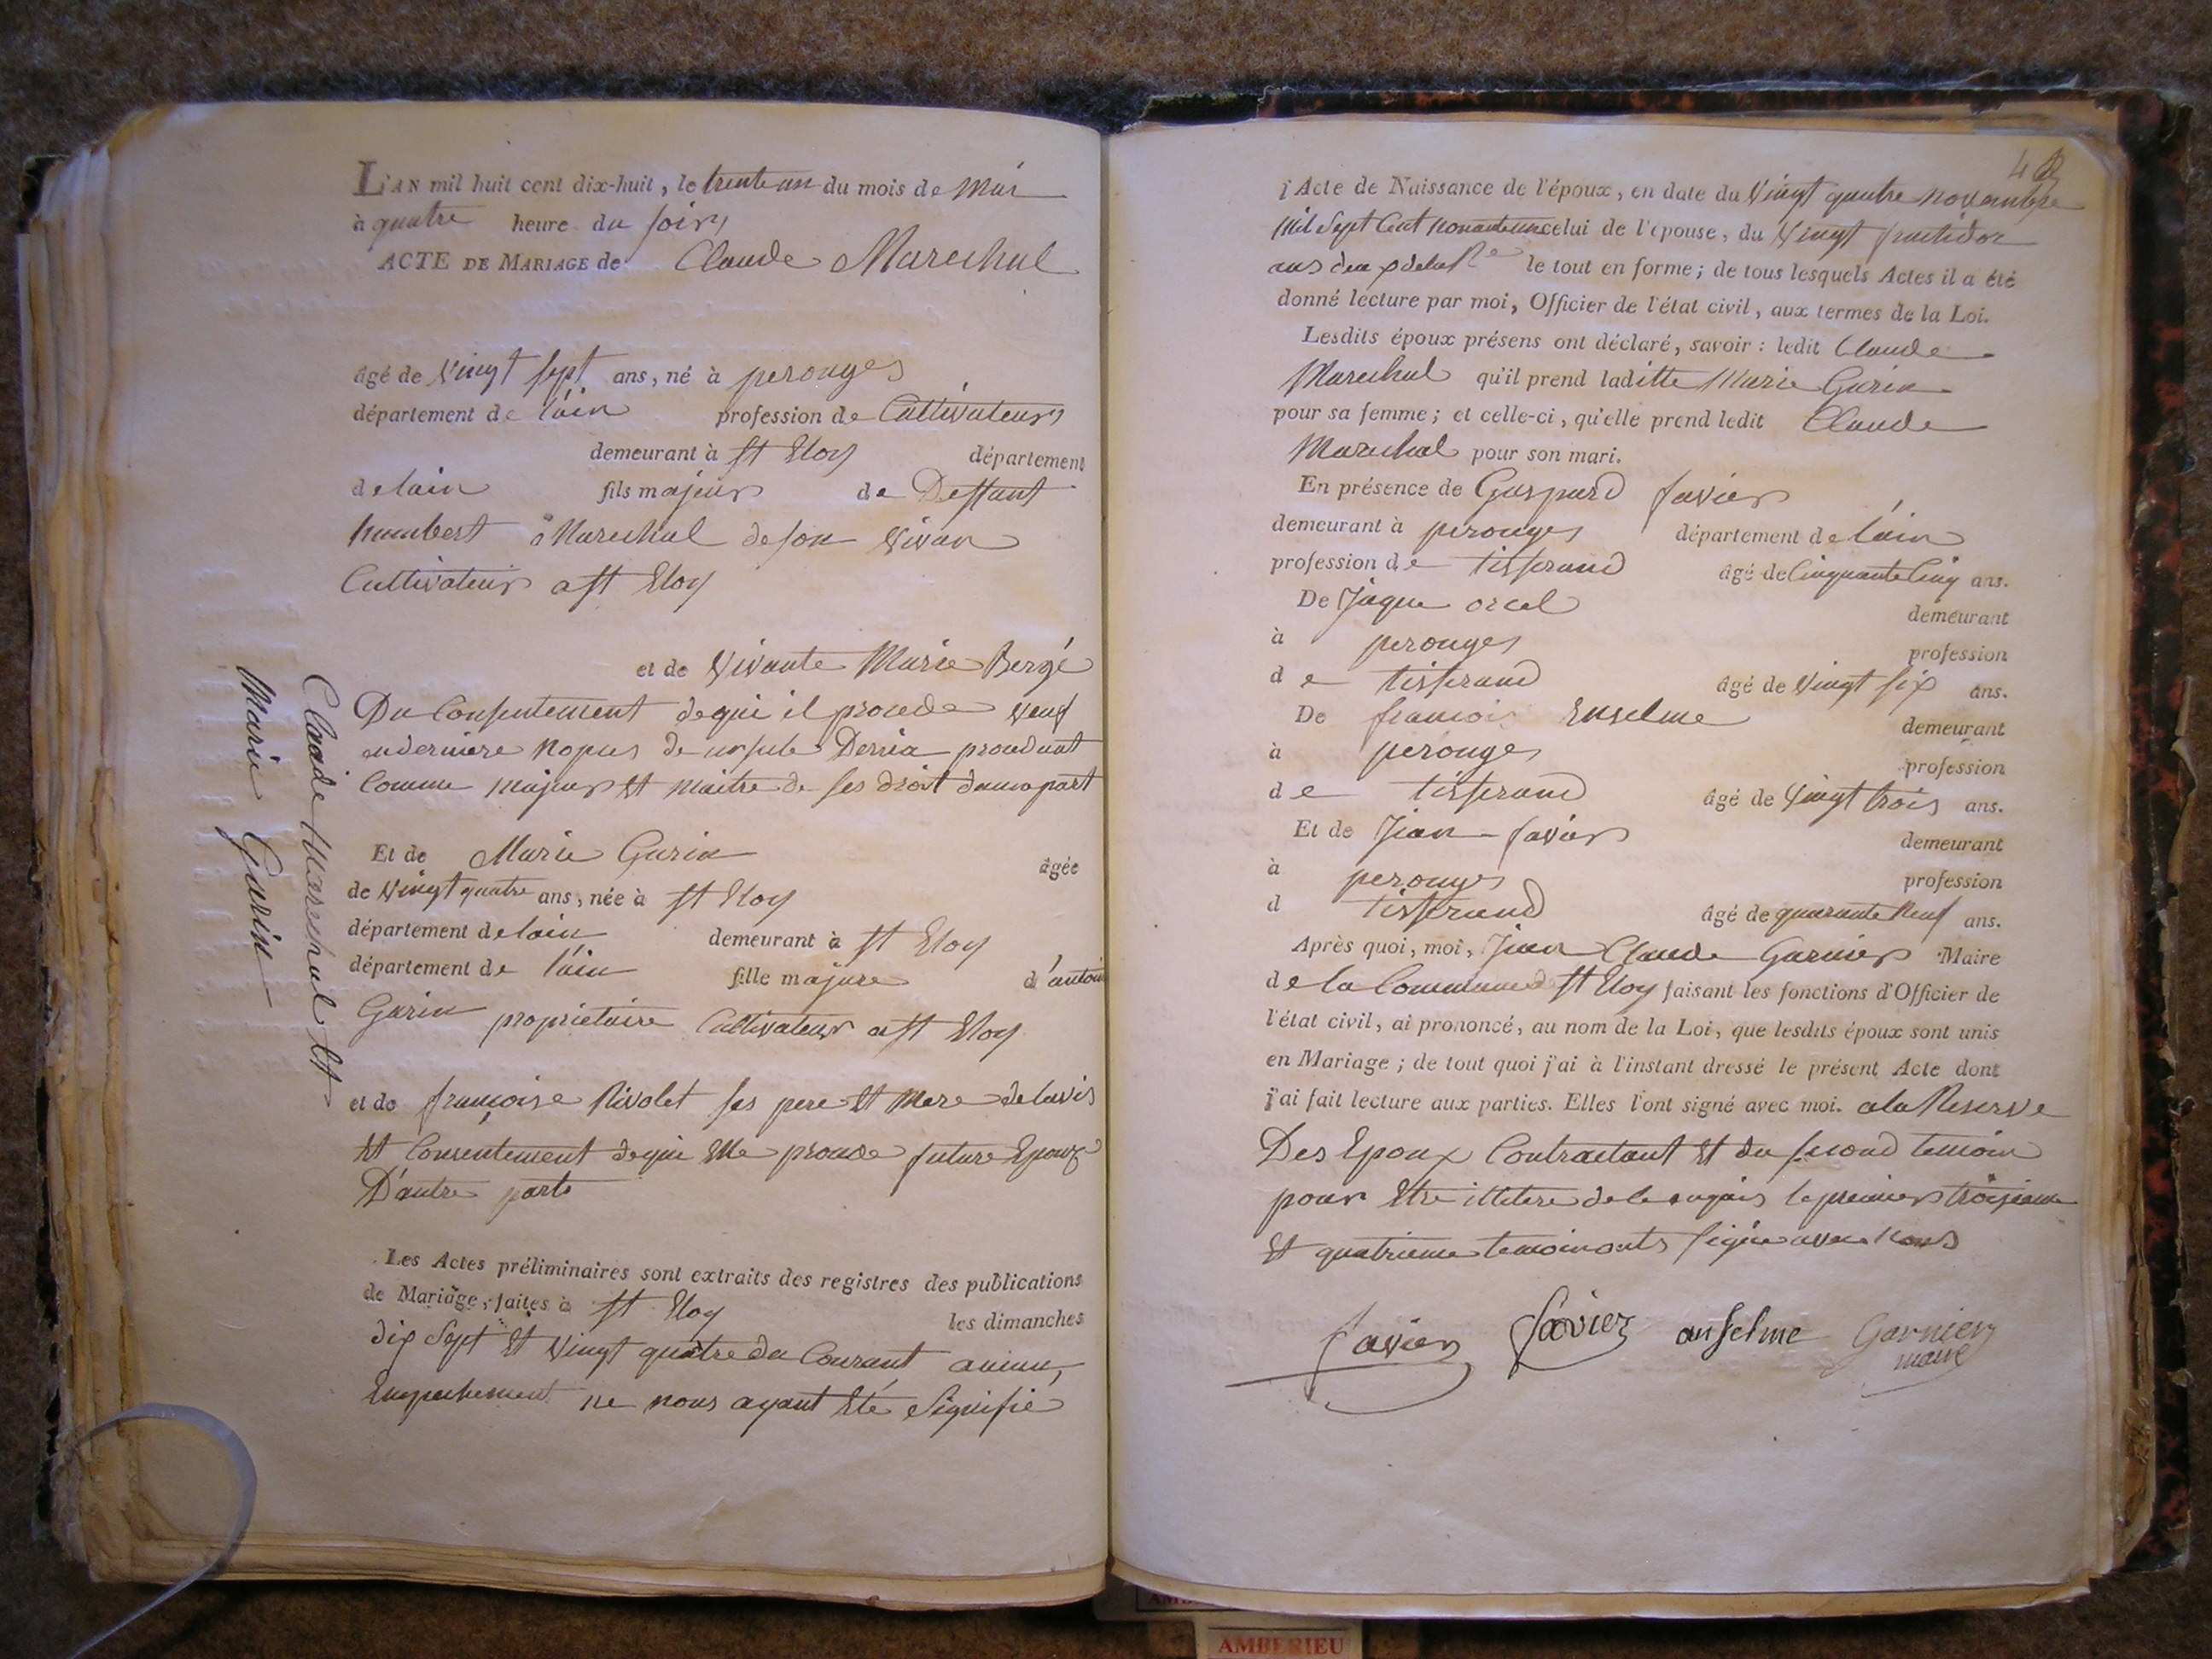 L'AN mil huit cent dix-huit, le trente un du mois de Mai
à quatre heure du soir
ACTE DE MARIAGE de Claude Marechal
âgé de Vingt sept ans, né à perouges
département de l'ain profession de Cultivateur
demeurant à st Eloy département
de lain fils majeur de Deffunt
humbert Marechal de son Vivan
Cultivateur a st Eloy
et de Vivante Marie Bergé
Du Consentement de qui il procede veuf
en derniere nopces de ursule Derria procedant
Comme majeur Et maitre de ses droit d'une part
Et de Marie Garin âgée
de Vingt quatre ans, née à st Eloy
département de lain demeurant à st Eloy
département de l'ain fille majure d'antoine
Garin proprietaire Cultivateur a st Eloy
et de françoise Rivolet ses pere Et Mere de lavis
Et Consentement de qui Elle procede future Epouze
D'autre part
Les Actes préliminaires sont extraits des registres des publications
de Mariage, faites à st Eloy les dimanches
dix Sept Et Vingt quatre du Courant aucun,
Empechement ne nous ayant Eté Signifié
Claude Marechal Et
Marie Garin
4
l'Acte de Naissance de l'époux, en date du Vingt quatre novembre
Mil Sept Cent nonante un celui de l'épouse, du Vingt fructidor
ans deux de la Re le tout en forme; de tous lesquels Actes il a été
donné lecture par moi, Officier de l'état civil, aux termes de la Loi.
Lesdits époux présens ont déclaré, savoir: ledit Claude
Marechal qu'il prend laditte Marie Garin
pour sa femme; et celle-ci, qu'elle prend ledit Claude
Marechal pour son mari.
En présence de Gaspard favier
demeurant à perouges département de l'ain
profession de tisserand âgé de Cinquante Cinq ans.
De Jaque orcel demeurant
à perouges profession
de tisserand âgé de Vingt six ans.
De francois Enselme demeurant
à perouges profession
de tisserand âgé de Vingt trois ans.
Et de Jean favier demeurant
à perouges profession
d tisserand âgé de quarante Neuf ans.
Après quoi, moi, Jean Claude Garnier Maire
de la Commune de st Eloy faisant les fonctions d'Officier de
l'état civil, ai prononcé, au nom de la Loi, que lesdits époux sont unis
en Mariage; de tout quoi j'ai à l'instant dressé le présent Acte dont
j'ai fait lecture aux parties. Elles l'ont signé avec moi. a la Reserve
Des Epoux Contractant Et du second temoin
pour Etre illetere de le requis le premier troisieme
Et quatrieme temoin onts signé avec Nous
favier favier anselme Garnier
maire
AMBERIEU